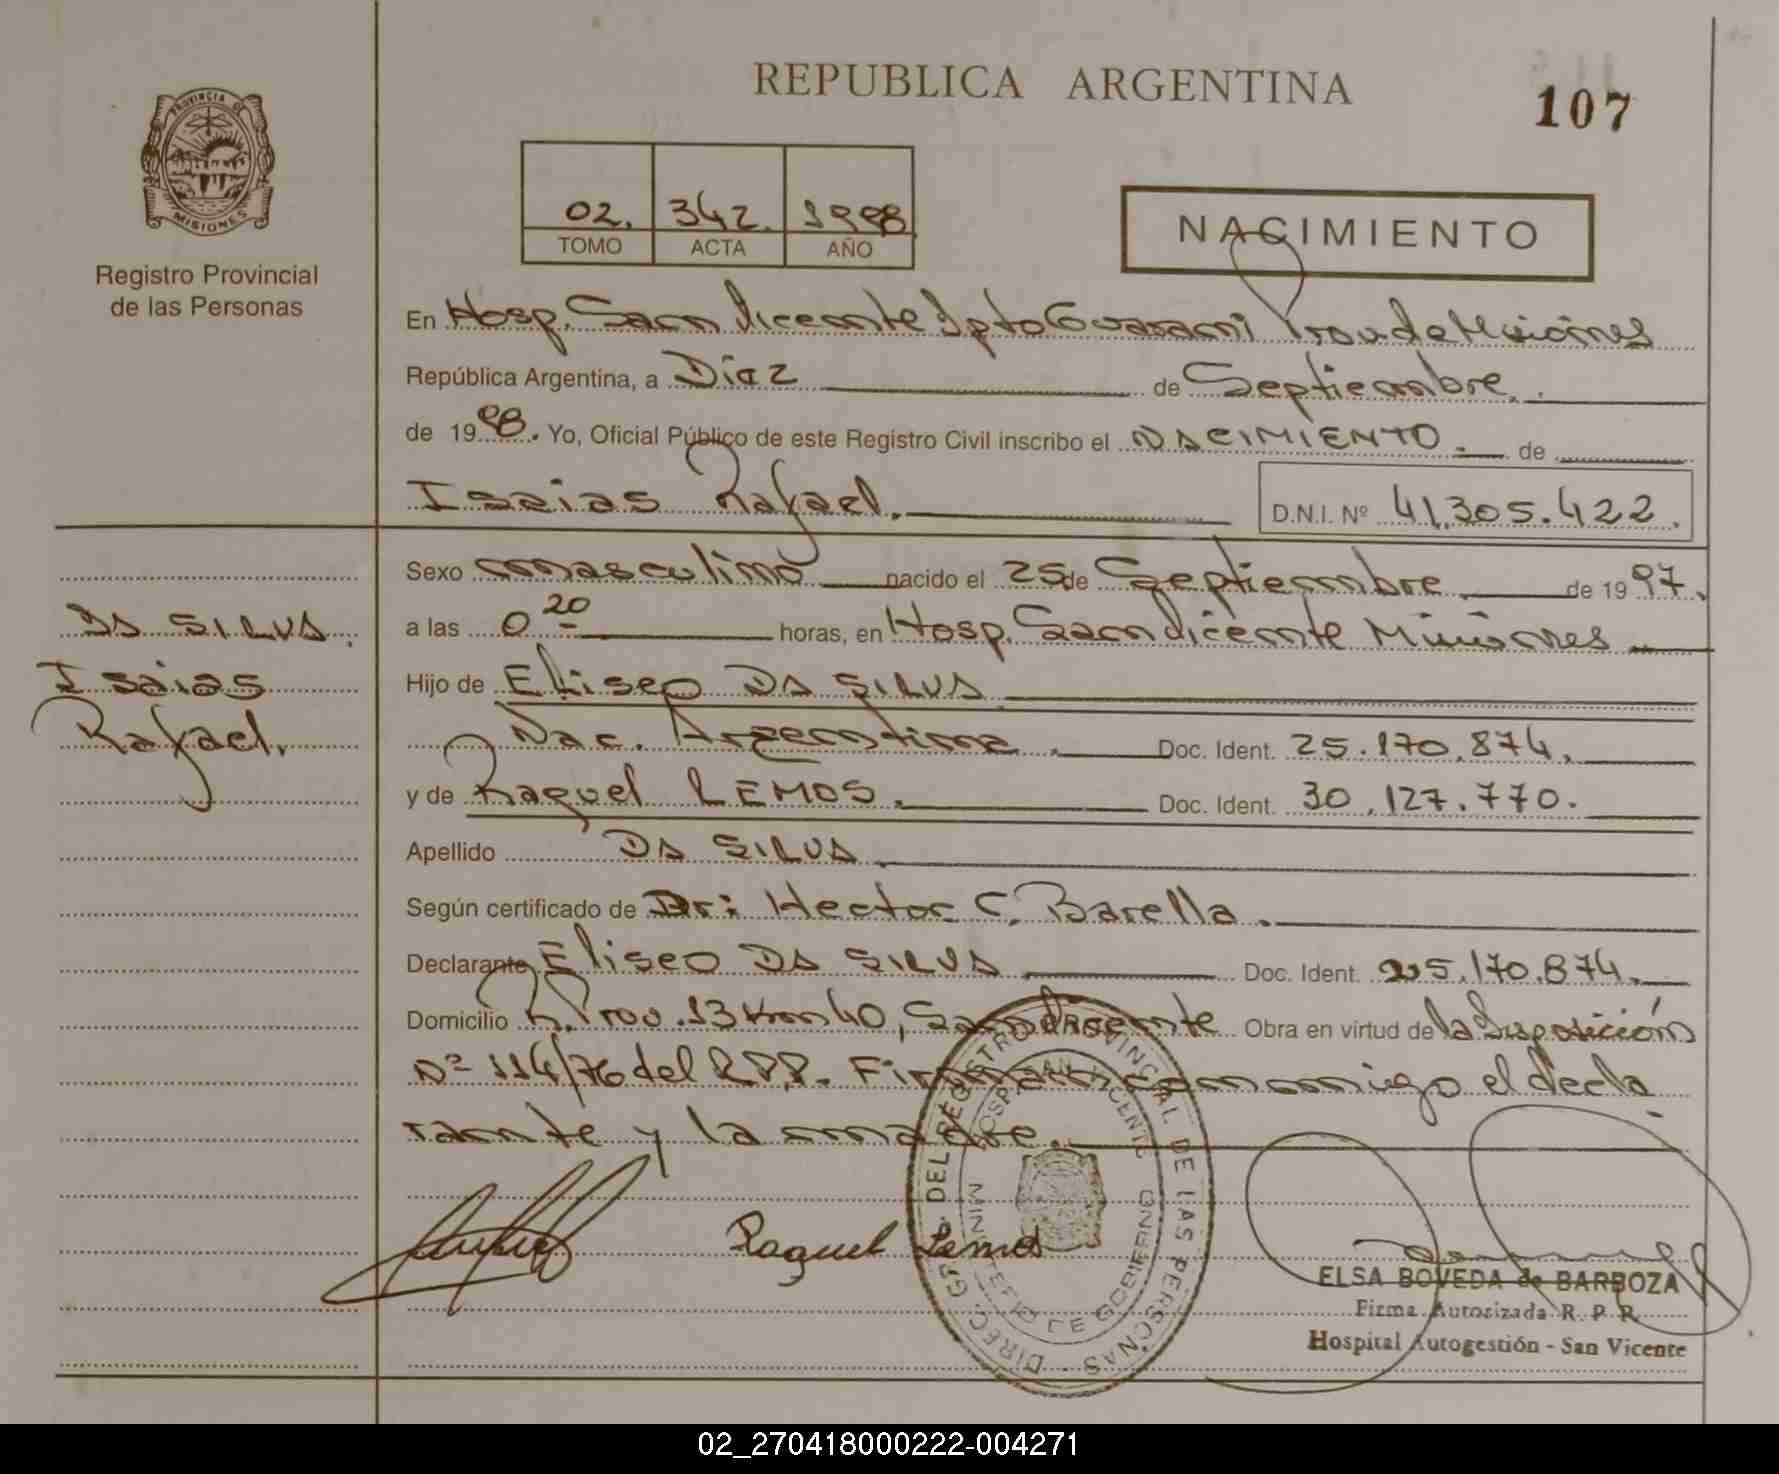 REPUBLICA ARGENTINA
107
PROVINCIA DE
MISIONES
Registro Provincial
de las Personas
02. 342. 1998
TOMO ACTA AÑO
NACIMIENTO
En Hosp. San Vicente Dpto Guarani Prov. de Misiones
República Argentina, a Diez de Septiembre.
de 1998. Yo, Oficial Público de este Registro Civil inscribo el NACIMIENTO. de
Isaias Rafael. D.N.I. Nº 41.305.422.
Sexo masculino nacido el 25 de Septiembre. de 1997.
a las 0 20 horas, en Hosp. San Vicente Misiones
Hijo de Eliseo DA SILVA
Nac. Argentina. Doc. Ident. 25.170.874.
y de Raquel LEMOS. Doc. Ident. 30.127.770.
Apellido DA SILVA
Según certificado de Dr: Hector C. Barella.
Declarante Eliseo DA SILVA Doc. Ident. 25.170.874.
Domicilio R. Prov. 13 Km 40, San Vicente Obra en virtud de la Disposición
Nº 114/76 del R.P.P. Firman conmigo el decla
rante y la madre.
DA SILVA.
Isaias
Rafael.
Raquel Lemos
DIREC. GRAL. DEL REGISTRO PROVINCIAL DE LAS PERSONAS
HOSPITAL SAN VICENTE
MINISTERIO DE GOBIERNO
ELSA BOVEDA de BARBOZA
Firma Autorizada R. P. P.
Hospital Autogestión - San Vicente
02_270418000222-004271